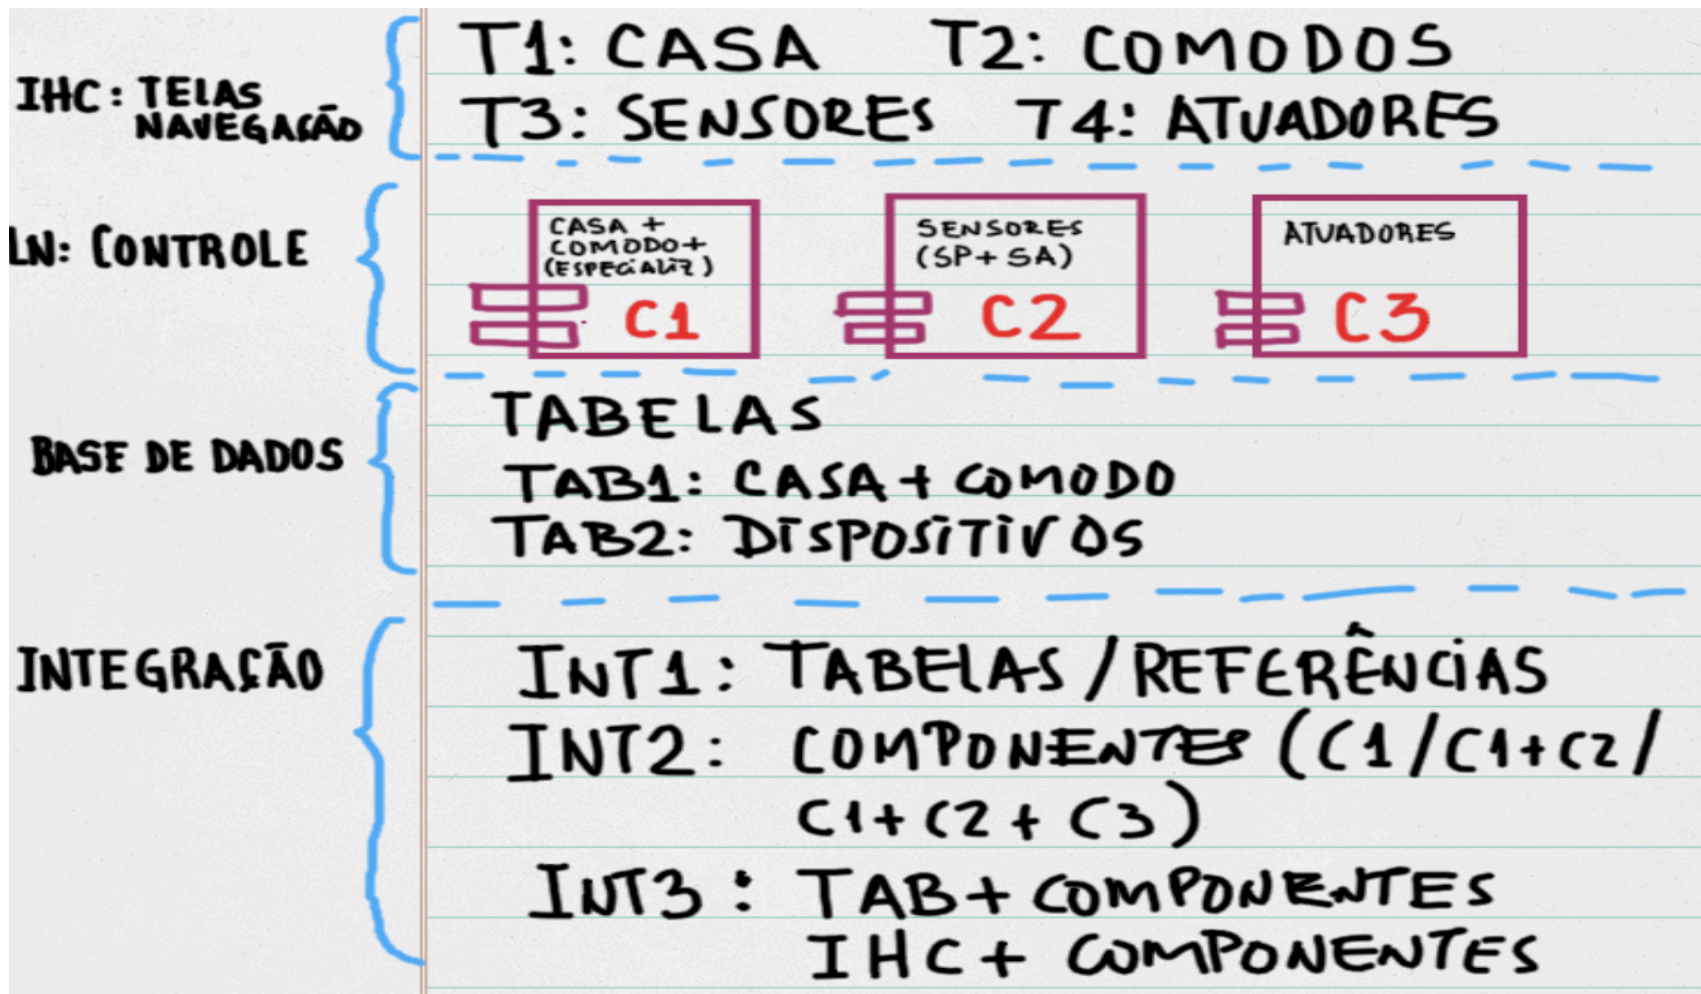 IHC: TELAS
NAVEGAÇÃO
T1: CASA T2: COMODOS
T3: SENSORES T4: ATUADORES
LN: CONTROLE
CASA +
COMODO+
(ESPECIALIZ)
C1
SENSORES
(SP+ SA)
C2
ATUADORES
C3
BASE DE DADOS
TABELAS
TAB1: CASA + COMODO
TAB2: DISPOSITIVOS
INTEGRAÇÃO
INT1: TABELAS/REFERÊNCIAS
INT2: COMPONENTES (C1/C1+C2/
C1+C2+C3)
INT3: TAB+COMPONENTES
IHC+ COMPONENTES